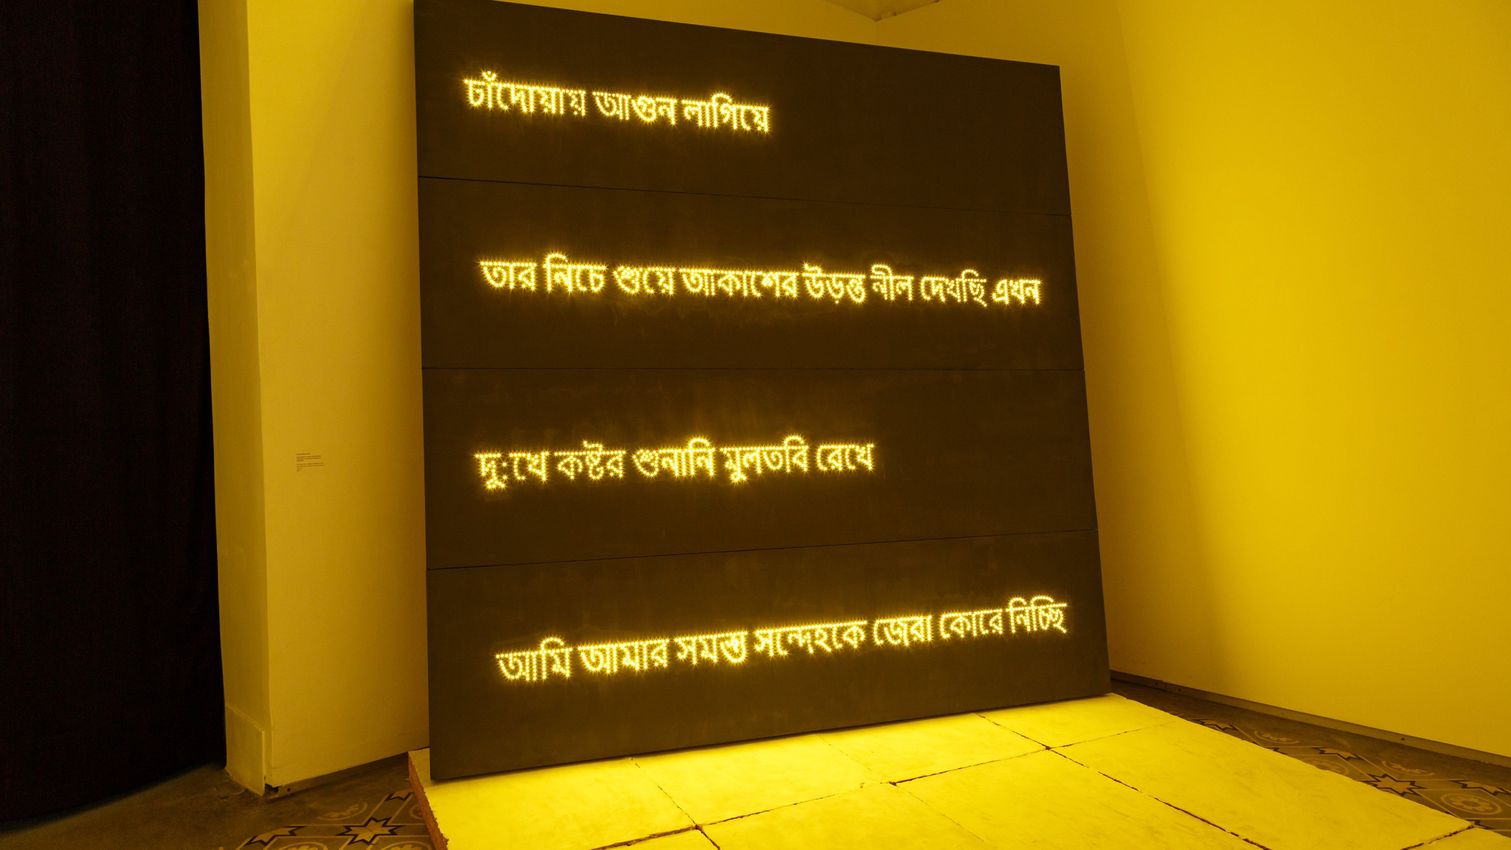 চাঁদোয়ায় আগুন লাগিয়ে
তার নিচে শুয়ে আকাশের উড়ন্ত নীল দেখছি এখন
দু:খে কষ্টর শুনানি মুলতবি রেখে
আমি আমার সমস্ত সন্দেহকে জেরা কোরে নিচ্ছি